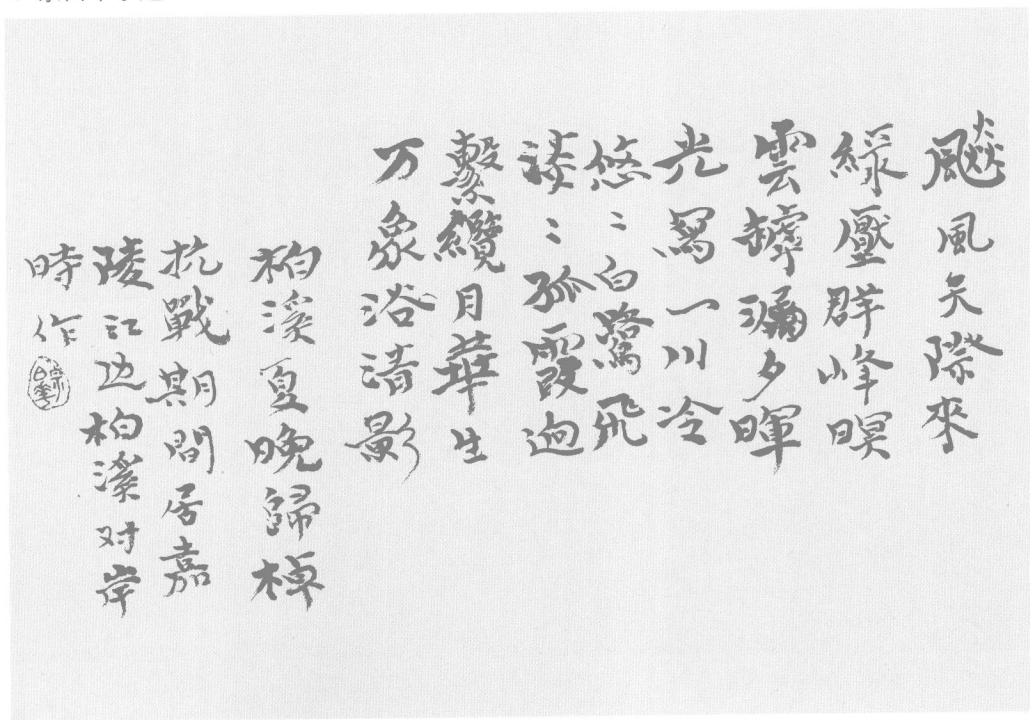 飈風天際來
綠壓群峰暝
雲罅漏夕暉
光寫一川冷
悠〻白鷺飛
淡〻孤霞迥
繫纜月華生
万象浴清影
柏溪夏晚歸棹
抗戰期間居嘉
陵江边柏溪对岸
時作